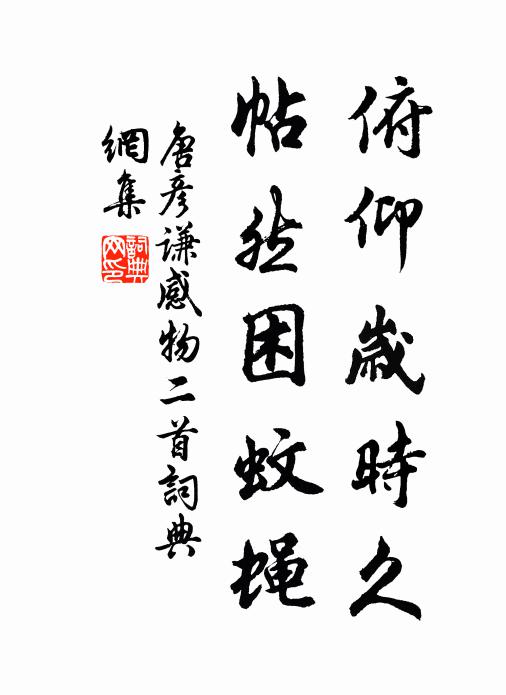 俯仰歲時久
帖然困蚊蝇
唐彦谦感物二首詞典
網集
詞典
网印